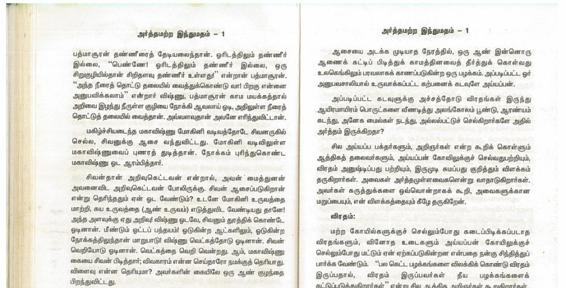 அர்த்தமற்ற இந்துமதம் – 1
பத்மாசுரன் தண்ணீரைத் தேடியலைந்தான். ஓரிடத்திலும் தண்ணீர்
இல்லை, "பெண்ணே! ஓரிடத்திலும் தண்ணீர் இல்லை, ஒரு
சிறுகுழியில்தான் சிறிதளவு தண்ணீர் உள்ளது!" என்றான் பத்மாசுரன்.
"அந்த நீரைத் தொட்டுத் தலையில் வைத்துக்கொண்டு வா! பிறகு என்னை
அனுபவிக்கலாம்" என்றார் விஷ்ணு. பத்மாசுரன் காம மயக்கத்தால்
அறிவை இழந்து நீருள்ள குழியை நோக்கி ஆவலாய் ஓடி, அதிலுள்ள நீரைத்
தொட்டுத் தலையில் வைத்தான். அவ்வளவுதான் அவனே எரிந்துவிட்டான்.
மகிழ்ச்சியடைந்த மகாவிஷ்ணு மோகினி வடிவத்தோடே சிவனருகில்
செல்ல, சிவனுக்கு ஆசை வந்துவிட்டது. மோகினி வடிவிலுள்ள
மகாவிஷ்ணுவைப் புணரத் துடித்தான். நோக்கம் புரிந்துகொண்ட
மகாவிஷ்ணு ஓட ஆரம்பித்தார்.
சிவன்தான் அறிவுகெட்டவன் என்றால், அவன் மைத்துனன்
அவனைவிட அறிவுகெட்டவன் போலிருக்கு. சிவன் ஆசைப்படுகிறான்
என்று தெரிந்ததும் ஏன் ஓட வேண்டும்? உடனே மோகினி உருவத்தை
மாற்றி, சுய உருவத்தை (ஆண் உருவம்) எடுத்துவிட வேண்டியது தானே!
அந்த அளவுக்கு எது அறிவு! விஷ்ணு ஓடவே, சிவனும் துரத்திக் கொண்டே
ஓடினான். மீண்டும் ஓட்டப் பந்தயம்! ஓடுகின்ற ஆட்களிலும், ஓடுகின்ற
நோக்கத்திலும்தான் மாறுபாடு! விஷ்ணு வெட்கத்தோடு ஓடினான். சிவன்
வெறியோடு ஓடினான். வெட்கத்தை வெறி வென்றது. ஆம், மகாவிஷ்ணு
கையை சிவன் பிடித்தார்; விவகாரம் என்ன செய்தாரோ நமக்குத் தெரியாது.
விளைவு என்ன தெரியுமா? அவர்களின் கையிலே ஒரு ஆண் குழந்தை
பிறந்துவிட்டது.
அர்த்தமற்ற இந்துமதம் – 1
ஆசையை அடக்க முடியாத நேரத்தில், ஒரு ஆண் இன்னொரு
ஆணைக் கட்டிப் பிடித்துக் காமத்தினவைத் தீர்த்துக் கொள்வது
உலகெங்கிலும் பரவலாகக் காணப்படுகின்ற ஒரு பழக்கம். அப்படிப்பட்ட ஓர்
அனுபவசாலியால் உருவாக்கப்பட்ட கற்பனைக் கடவுளே அய்யப்பன்.
அப்படிப்பட்ட கடவுளுக்கு அச்சத்தோடு விரதங்கள் இருந்து
ஆயிரமாயிரம் பொருட்களை வீணடித்து அலங்கோலம் பூண்டு, ஆரண்யம்
கடந்து, அனேக மைல்கள் நடந்து, அல்லல்பட்டுச் செல்கிறார்களே அதில்
அர்த்தம் இருக்கிறதா?
சில அய்யப்ப பக்தர்களும், அறிஞர்கள் என்ற கூறிக் கொள்ளும்
ஆத்திகத் தலைவர்களும், அய்யப்பன் கோவிலுக்குச் செல்வதுபற்றியும்,
விரதம் அனுஷ்டிப்பது பற்றியும், இருமுடி சுமப்பது குறித்தும் விளக்கம்
தருகிறார்கள். அவைகள் அர்த்தமுள்ளவைகளென்று வாதாடுகிறார்கள்.
அவர்கள் கருத்துக்களை ஒவ்வொன்றாகக் கூறி, அவைகளுக்கான
மறுப்பையும், என் விளக்கத்தையும் கீழே தருகிறேன்.
விரதம்:
மற்ற கோயில்களுக்குச் செல்லும்போது கடைப்பிடிக்கப்படாத
விரதங்களும், வினோத உடைகளும் அய்யப்பன் கோயிலுக்குச்
செல்லும்போது மட்டும் ஏன் ஏற்கப்படுகின்றன என்பதை நன்கு சிந்தித்துப்
பார்க்க வேண்டும். "பல கெட்ட பழக்கங்களை விலக்கிக் கொண்டு விரதம்
இருப்பதால், விரதம் இருப்பவர்கள் தீய பழக்கங்களைக்